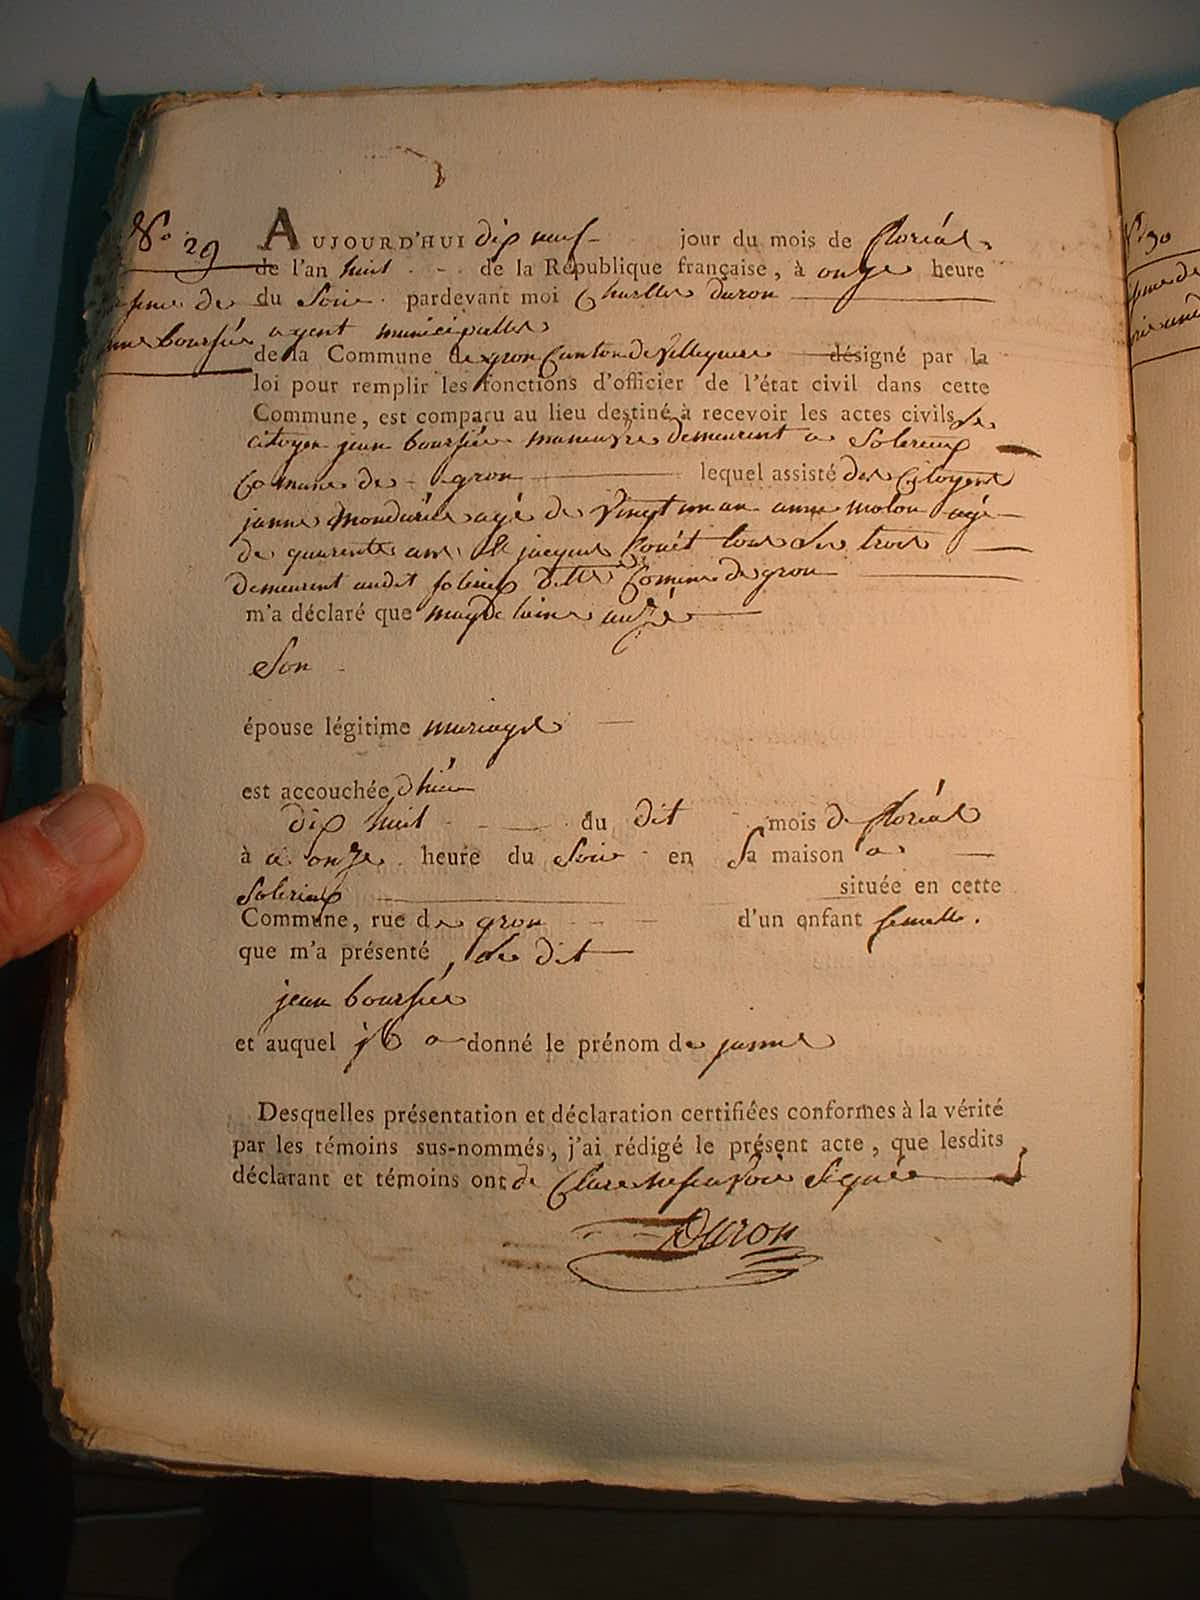 No. 29
AUJOURD'HUI dix neuf jour du mois de floréal
de l'an huit de la République française, à onze heure
du Soire pardevant moi Charlles duron
agent municipalle
de la Commune de gron Canton de Villequiere désigné par la
loi pour remplir les fonctions d'officier de l'état civil dans cette
Commune, est comparu au lieu destiné à recevoir les actes civils le
citoyen jean boursiée maneuvre demeurent a Solerieux
Comune de gron lequel assisté des Citoyens
janne agé de Vingt un an anne molon agé
de quarente ans et jacques tous les trois
demeurent audit ditte Comune de gron
m'a déclaré que magdelaine
Son
épouse légitime mariage
est accouchée d'hiée
dix huit du dit mois de floréal
à a onze heure du Soire en Sa maison a
située en cette
Commune, rue de gron d'un enfant femelle.
que m'a présenté le dit
jean boursiée
et auquel il a donné le prénom de janne
Desquelles présentation et déclaration certifiées conformes à la vérité
par les témoins sus-nommés, j'ai rédigé le présent acte, que lesdits
déclarant et témoins ont de Clare ne savoir Signée
Duron
No 30